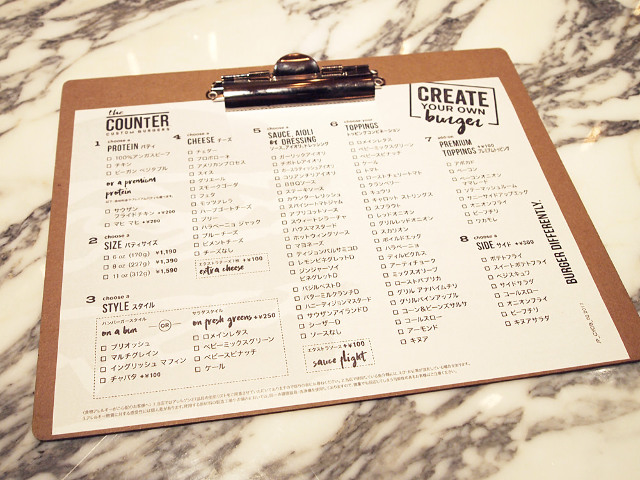 the
COUNTER
CUSTOM BURGERS
CREATE
YOUR OWN
burger
1 choose a
PROTEIN パティ
100%アンガスビーフ
チキン
ビーガン ベジタブル
or a premium
protein
サウザン
フライドチキン +¥200
マヒ マヒ +¥200
2 choose a
SIZE パティサイズ
6 oz (170g) ¥1,190
8 oz (227g) ¥1,390
11 oz (312g) ¥1,590
3 choose a
STYLE スタイル
ハンバーガースタイル
on a bun
ブリオッシュ
マルチグレイン
イングリッシュ マフィン
チャバタ +¥100
OR
サラダスタイル
on fresh greens +¥250
ロメインレタス
ベビーミックスグリーン
ベビースピナッチ
ケール
4 choose a
CHEESE チーズ
チェダー
プロボローネ
アメリカンプロセス
スイス
グリエール
スモークゴーダ
フェタ
モッツァレラ
ハーブゴートチーズ
ブリー
ハラペーニョ ジャック
ブルーチーズ
ピメントチーズ
チーズなし
エクストラチーズ1枚 +¥100
extra cheese
5 choose a
SAUCE, AIOLI
or DRESSING
ソース、アイオリ、ドレッシング
ガーリックアイオリ
チポトレアイオリ
ローストガーリックアイオリ
コリアンオリアイオリ
BBQソース
ステーキソース
カウンターレリッシュ
スパイシートマトジャム
アプリコットソース
スウィートシラーチャ
ハウスマスタード
ホットウィングソース
マヨネーズ
ディジョンバルサミコD
レモンビネグレットD
ジンジャーソイ
ビネグレットD
バジルペストD
バターミルクランチD
ハニーディジョンマスタード
サウザンアイランドD
シーザーD
ソースなし
エクストラソース +¥100
sauce flight
6 choose your
TOPPINGS
トッピングコンビネーション
ロメインレタス
ベビーミックスグリーン
ベビースピナッチ
ケール
トマト
ローストトマト
クランベリー
キュウリ
キャロット ストリングス
スプラウト
レッドオニオン
グリルレッドオニオン
スカリオン
ボイルドエッグ
ハラペーニョ
ディルピクルス
アーティチョーク
ミックスオリーブ
ローストパプリカ
グリル アナハイムチリ
グリルパインアップル
コーン&ビーンズサルサ
コールスロー
アーモンド
キヌア
7 add-on
PREMIUM
TOPPINGS +¥150
プレミアムトッピング
アボカド
ベーコン
ベーコンオニオン
マーマレード
ソテーマッシュルーム
サニーサイドアップエッグ
オニオンフライ
ビーフチリ
ワカモレ
8 choose a
SIDE サイド +¥300
ポテトフライ
スイートポテトフライ
ベジスキュア
サイドサラダ
コールスロー
オニオンフライ
ビーフチリ
キヌアサラダ
BURGER DIFFERENTLY.